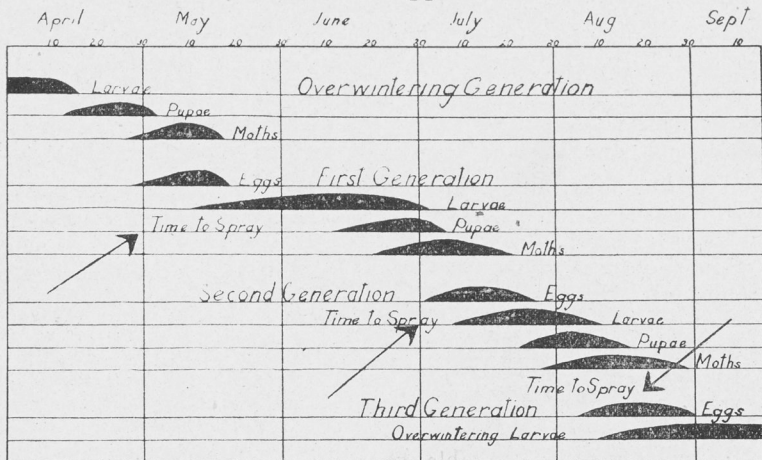 April May June July Aug Sept
10 20 30 10 20 30 10 20 30 10 20 30 10 20 30 10
Larvae Overwintering Generation
Pupae
Moths
Eggs First Generation
Larvae
Time to Spray Pupae
Moths
Second Generation Eggs
Time to Spray Larvae
Pupae
Moths
Time to Spray
Third Generation Eggs
Overwintering Larvae